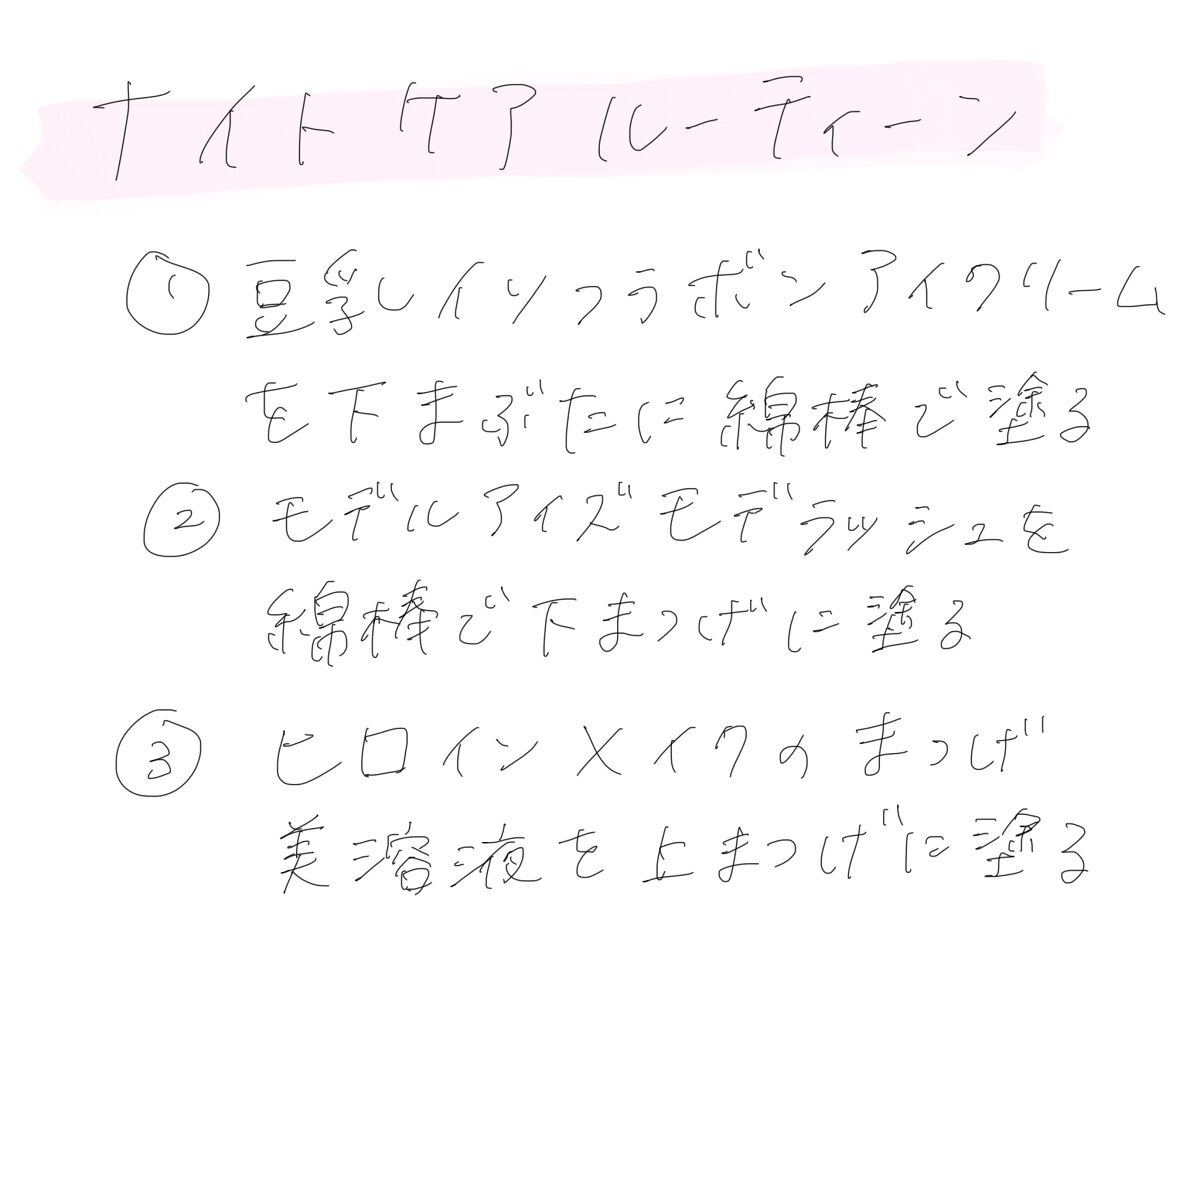 ナイトケアルーティーン
① 豆乳イソフラボンアイクリーム
を下まぶたに綿棒で塗る
② モデルアイズモデラッシュを
綿棒で下まつげに塗る
③ ヒロインメイクのまつげ
美溶液を上まつげに塗る